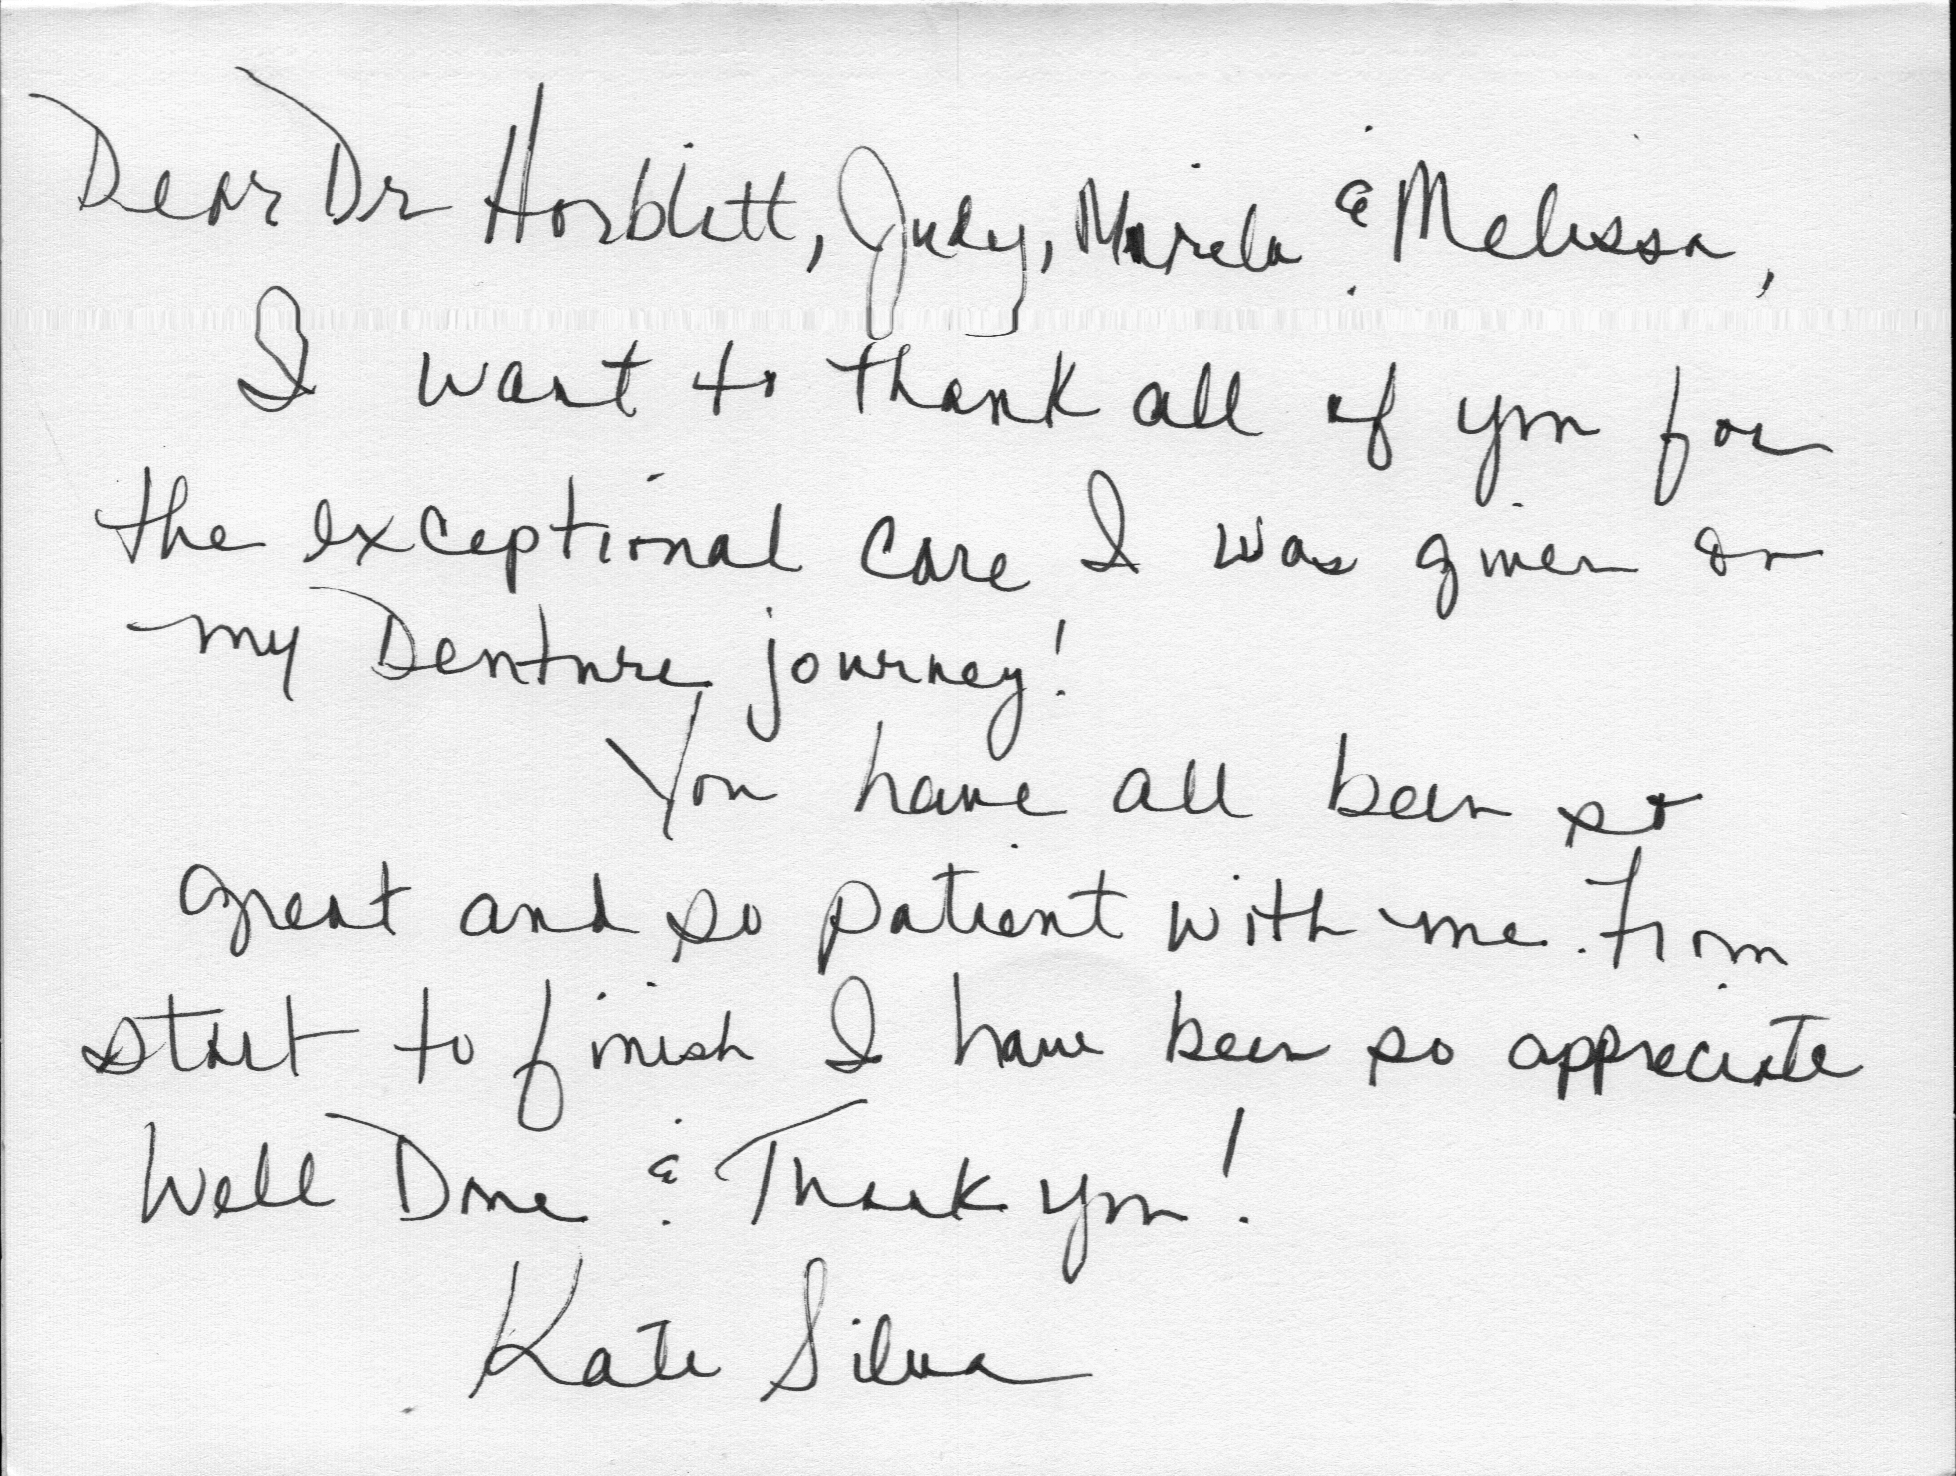 Dear Dr Horblitt, Judy, Mirela & Melissa,
I want to thank all of you for
the exceptional care I was given on
my Denture journey!
You have all been so
great and so patient with me. From
start to finish I have been so appreciate
Well Done & Thank you!
Kate Silva